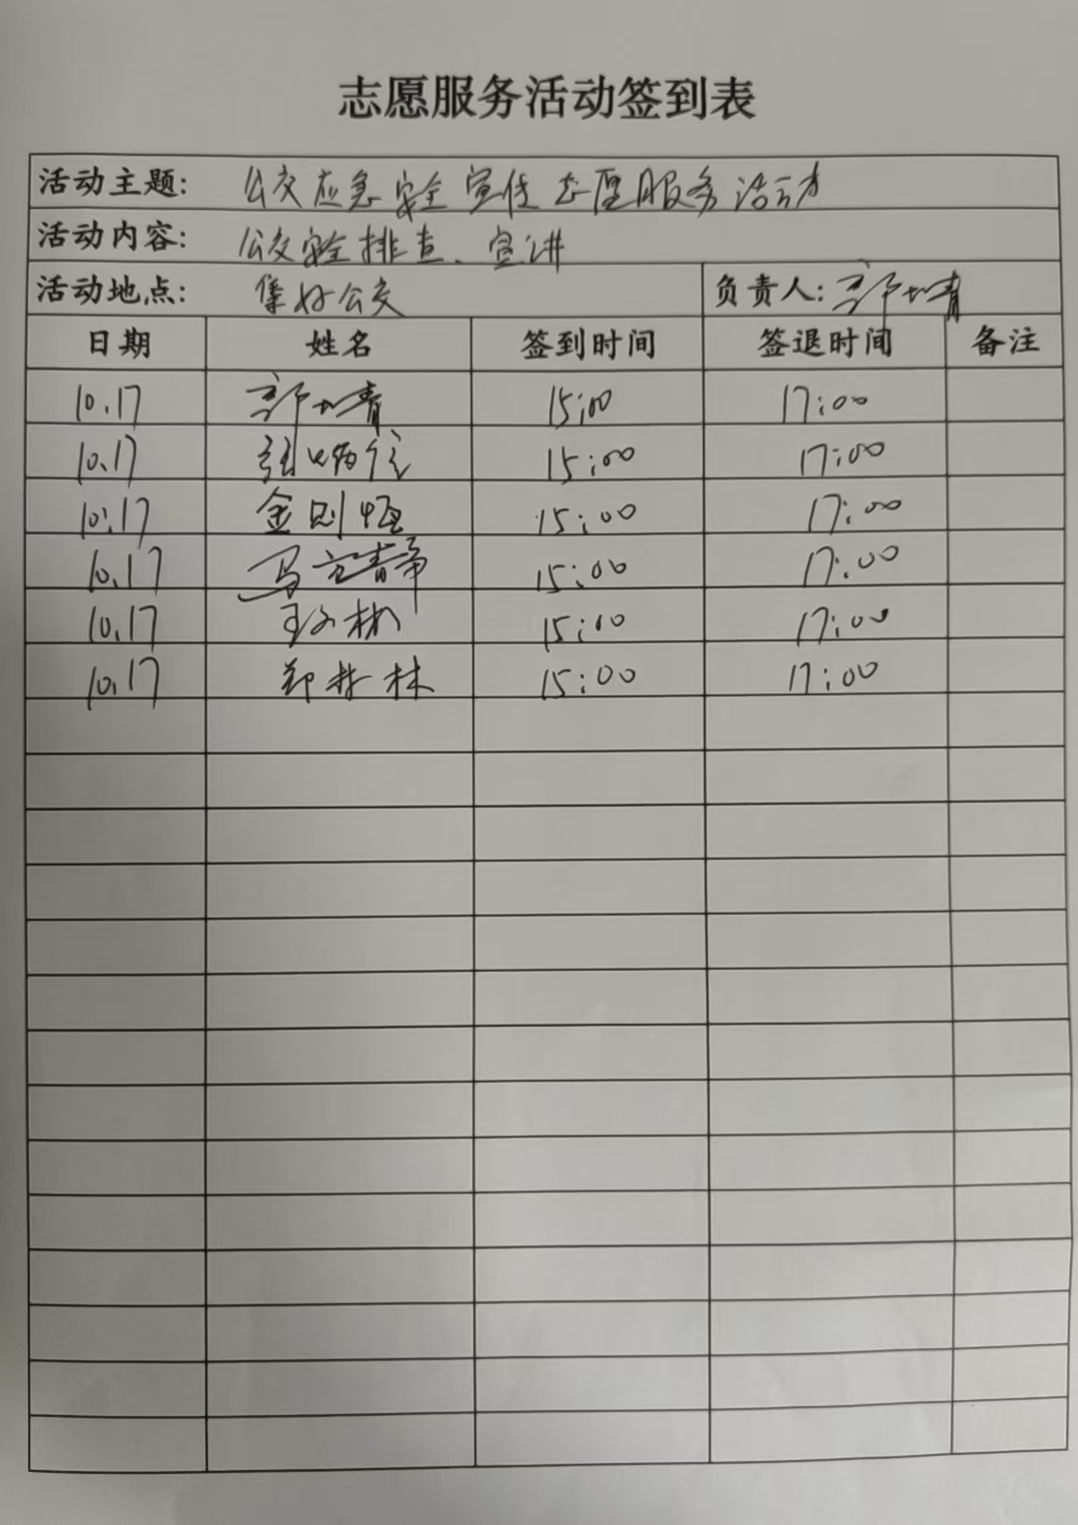 志愿服务活动签到表
活动主题: 公交应急安全宣传志愿服务活动
活动内容: 公交安全排查、宣讲
活动地点: 公交 负责人: 郭青
日期 姓名 签到时间 签退时间 备注
10.17 郭青 15:00 17:00
10.17 张 15:00 17:00
10.17 金则恒 15:00 17:00
10.17 马 15:00 17:00
10.17 王彬 15:00 17:00
10.17 郑林 15:00 17:00